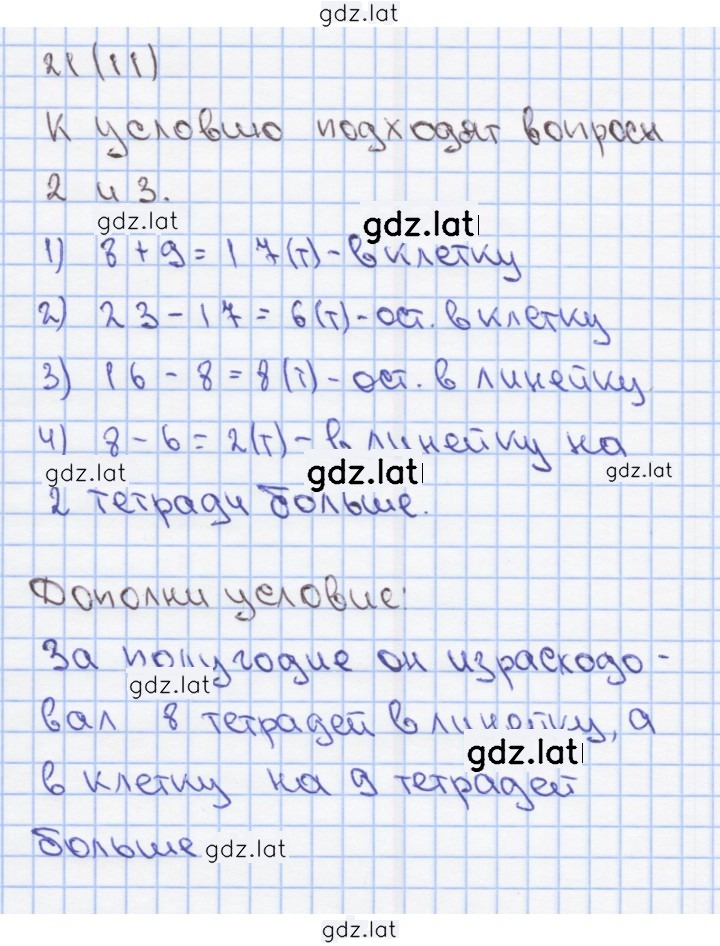 gdz.lat
21 (11)
К условию подходят вопросы
2 и 3.
gdz.lat gdz.lat
1) 8 + 9 = 17(т) - в клетку
2) 23 - 17 = 6(т) - ост. в клетку
3) 16 - 8 = 8(т) - ост. в линейку
4) 8 - 6 = 2(т) - в линейку на
gdz.lat gdz.lat gdz.lat
2 тетради больше.
Дополни условие:
За полугодие он израсходо-
gdz.lat
вал 8 тетрадей в линейку, а
gdz.lat
в клетку на 9 тетрадей
больше gdz.lat
gdz.lat